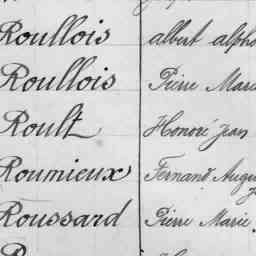 Roullois albert alpho
Roullois Pierre Marie
Roult Honoré Jean
Roumieux Fernand Augu
Roussard Pierre Marie